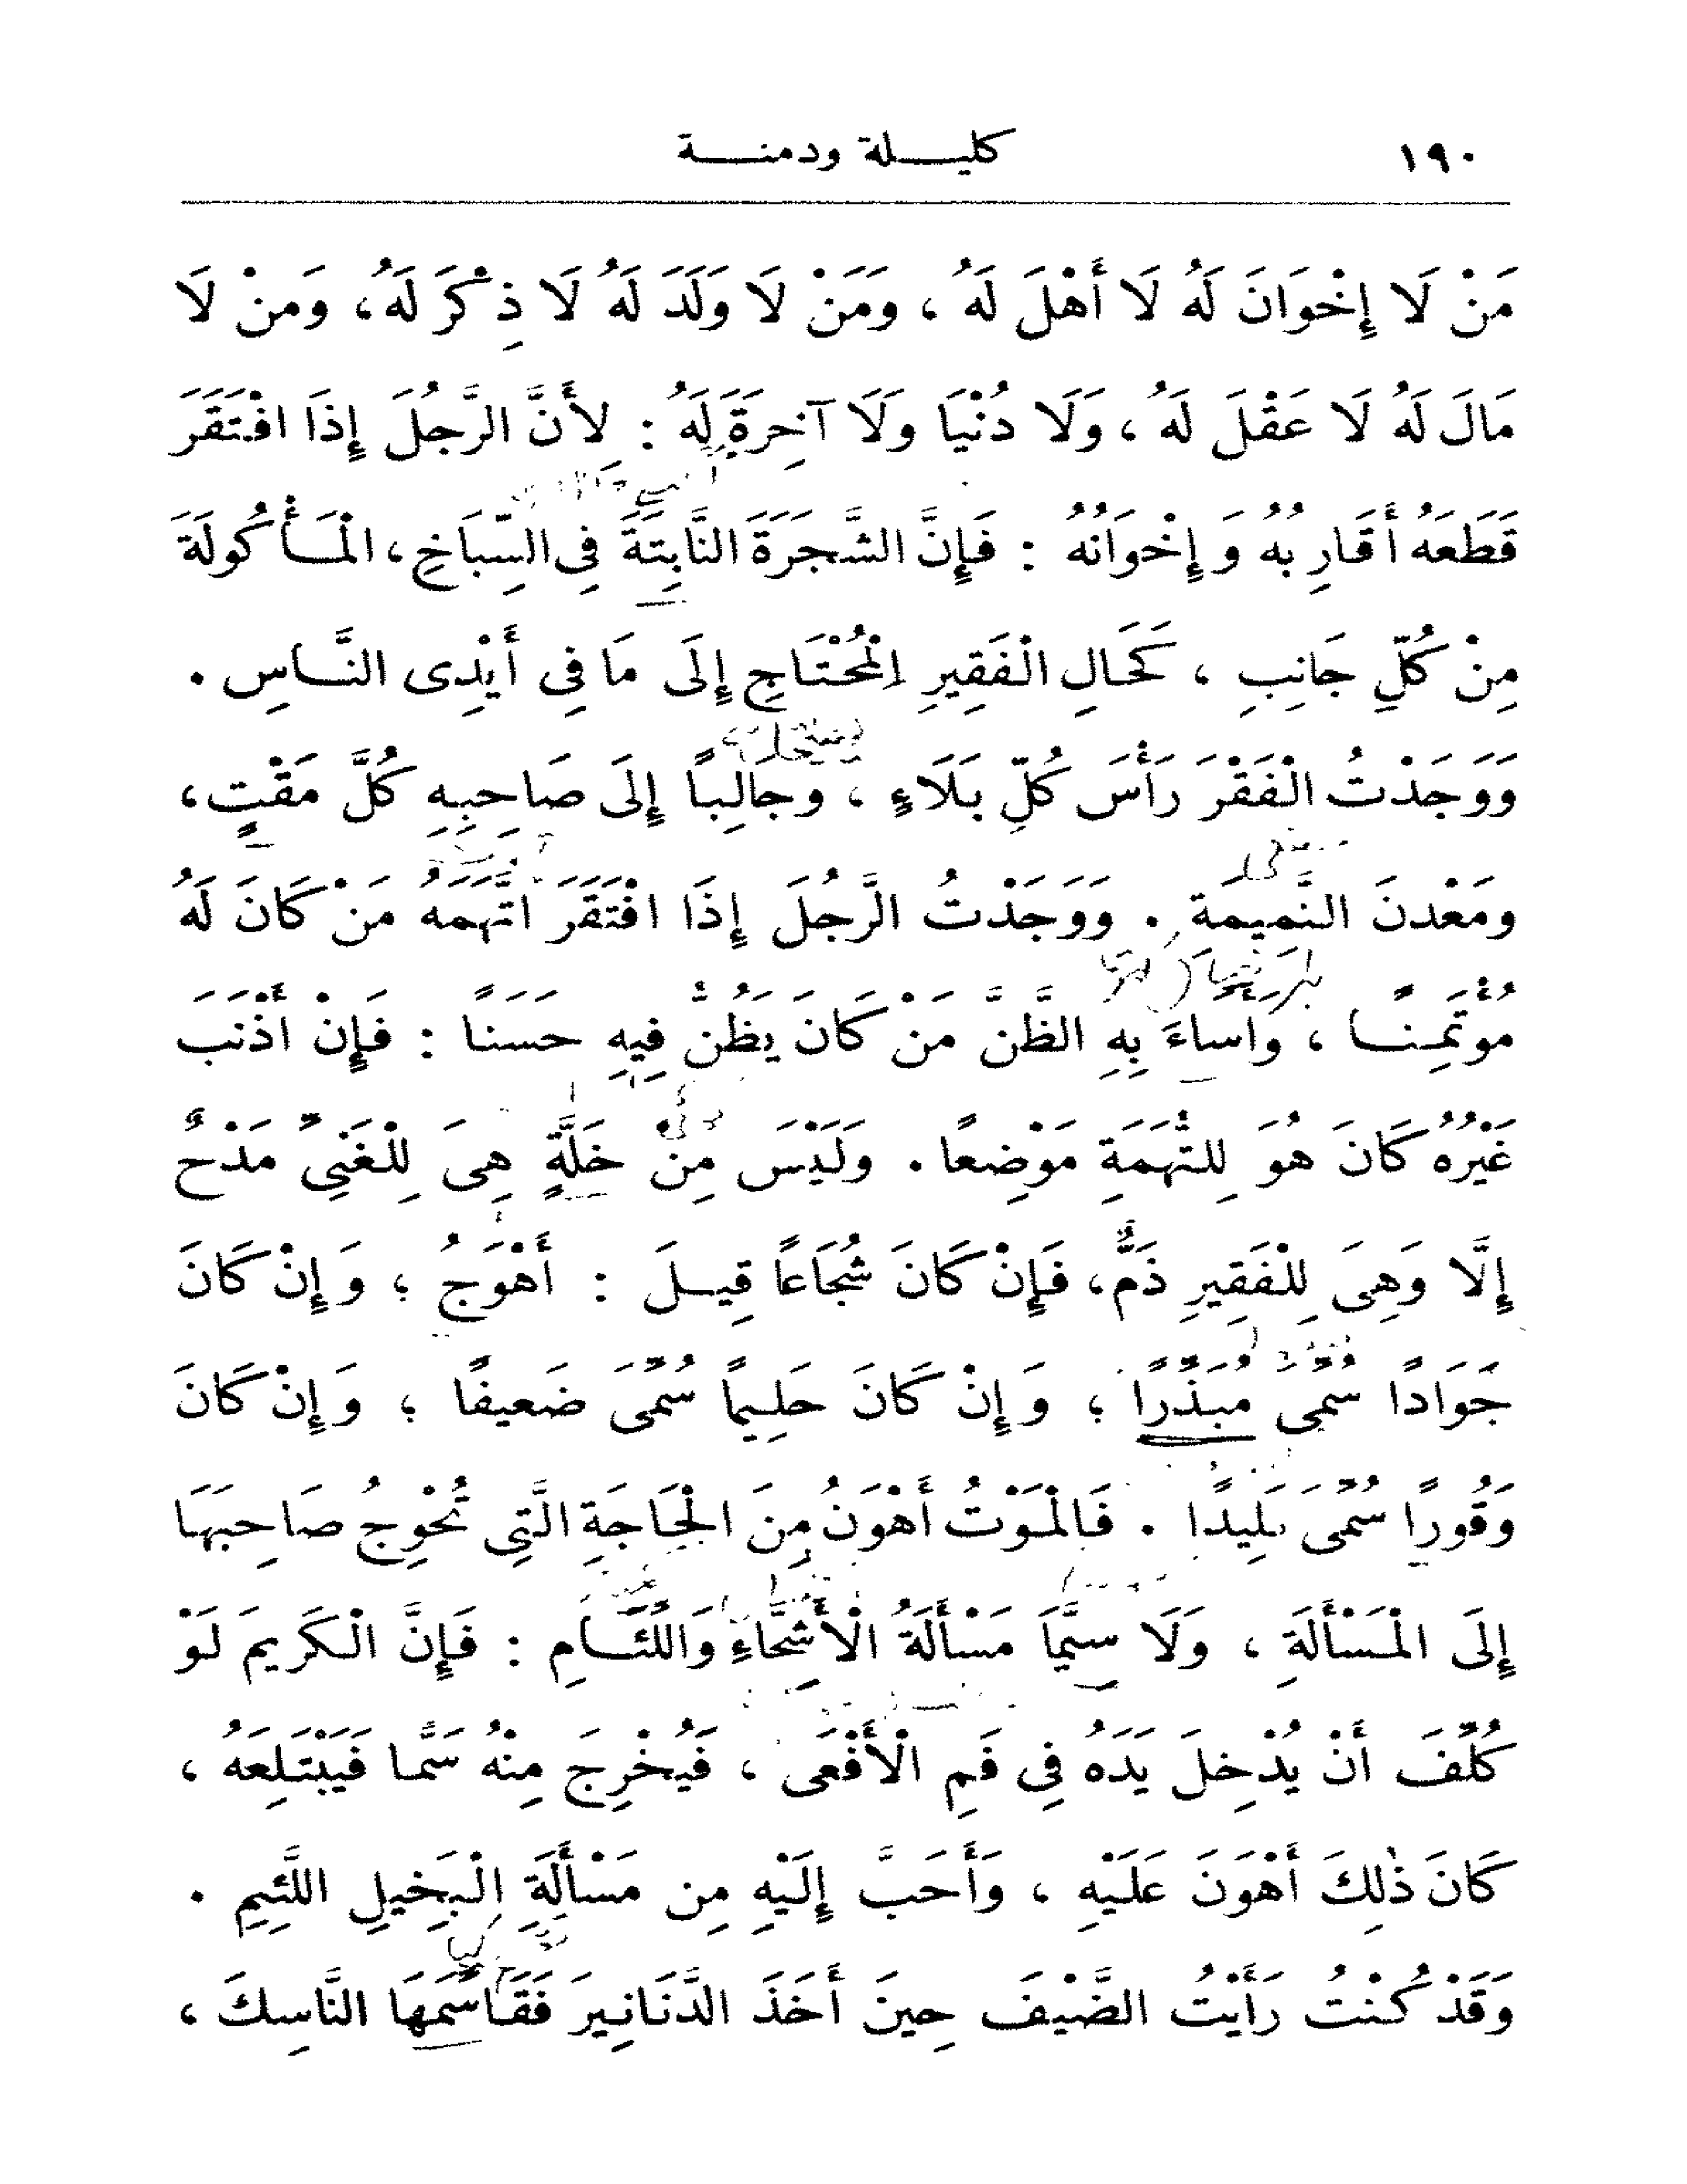 ١٩٠
كليلة ودمنة
مَنْ لَا إِخْوَانَ لَهُ لَا أَهْلَ لَهُ ، وَمَنْ لَا وَلَدَ لَهُ لَا ذِكْرَ لَهُ ، وَمنْ لَا
مَالَ لَهُ لَا عَقْلَ لَهُ ، وَلَا دُنْيَا وَلَا آخِرَةَ لَهُ : لِأَنَّ الرَّجُلَ إِذَا افْتَقَرَ
قَطَعَهُ أَقَارِبُهُ وَإِخْوَانُهُ : فَإِنَّ الشَّجَرَةَ النَّابِتَةَ فِى السِّبَاخِ ، الْمَأْكُولَةَ
مِنْ كُلِّ جَانِبٍ ، كَحَالِ الْفَقِيرِ الْمُحْتَاجِ إِلَى مَا فِى أَيْدِى النَّاسِ .
وَوَجَدْتُ الْفَقْرَ رَأْسَ كُلِّ بَلَاءٍ ، وَجَالِبًا إِلَى صَاحِبِهِ كُلَّ مَقْتٍ ،
وَمَعْدنَ النَّمِيمَةِ . وَوَجَدْتُ الرَّجُلَ إِذَا افْتَقَرَ اتَّهَمَهُ مَنْ كَانَ لَهُ
مُؤْتَمِنًا ، وَأَسَاءَ بِهِ الظَّنَّ مَنْ كَانَ يَظُنُّ فِيهِ حَسَنًا : فَإِنْ أَذْنَبَ
غَيْرُهُ كَانَ هُوَ لِلتُّهَمَةِ مَوْضِعًا . وَلَيْسَ مِنْ خَلَّةٍ هِىَ لِلْغَنِىِّ مَدْحٌ
إِلَّا وَهِىَ لِلْفَقِيرِ ذَمٌّ ، فَإِنْ كَانَ شُجَاعًا قِيلَ : أَهْوَجُ ؛ وَإِنْ كَانَ
جَوَادًا سُمِّىَ مُبَذِّرًا ؛ وَإِنْ كَانَ حَلِيمًا سُمِّىَ ضَعِيفًا ؛ وَإِنْ كَانَ
وَقُورًا سُمِّىَ بَلِيدًا . فَالْمَوْتُ أَهْوَنُ مِنَ الْحَاجَةِ الَّتِى تُحْوِجُ صَاحِبَهَا
إِلَى الْمَسْأَلَةِ ، وَلَا سِيَّمَا مَسْأَلَةُ الْأَشِحَّاءِ وَاللِّئَامِ : فَإِنَّ الْكَرِيمَ لَوْ
كُلِّفَ أَنْ يُدْخِلَ يَدَهُ فِى فَمِ الْأَفْعَى ، فَيُخْرِجَ مِنْهُ سَمًّا فَيَبْتَلِعَهُ ،
كَانَ ذٰلِكَ أَهْوَنَ عَلَيْهِ ، وَأَحَبَّ إِلَيْهِ مِن مَسْأَلَةِ الْبَخِيلِ اللَّئِيمِ .
وَقَدْ كُنْتُ رَأَيْتُ الضَّيْفَ حِينَ أَخَذَ الدَّنَانِيرَ فَقَاسَمَهَا النَّاسِكَ ،